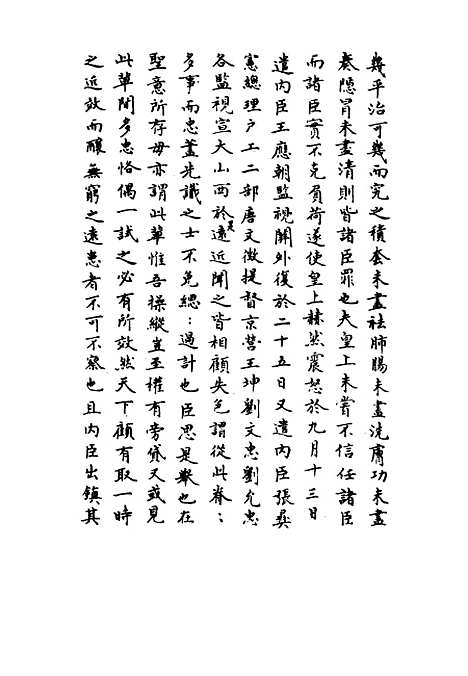 幾乎治可幾而究之積套未盡祛肺腸未盡洗膚功未盡
奏隱冒未盡清則皆諸臣罪也夫皇上未嘗不信任諸臣
而諸臣實不克負荷遂使皇上赫然震怒於九月十三日
遣内臣王應朝監視關外復於二十五日又遣内臣張彜
憲總理户工二部唐文徵提督京營王坤劉文忠劉允忠
各監視宣大山西於是遠近聞之皆相顧失色謂從此眷：
多事而忠藎先識之士不免總：過計也臣思是舉也在
聖意所存毋亦謂此軰惟吾操縱豈至權有旁貸又或見
此軰間多忠恪偶一試之必有所效然天下顧有取一時
之近效而釀無窮之遠患者不可不察也且内臣出鎮其